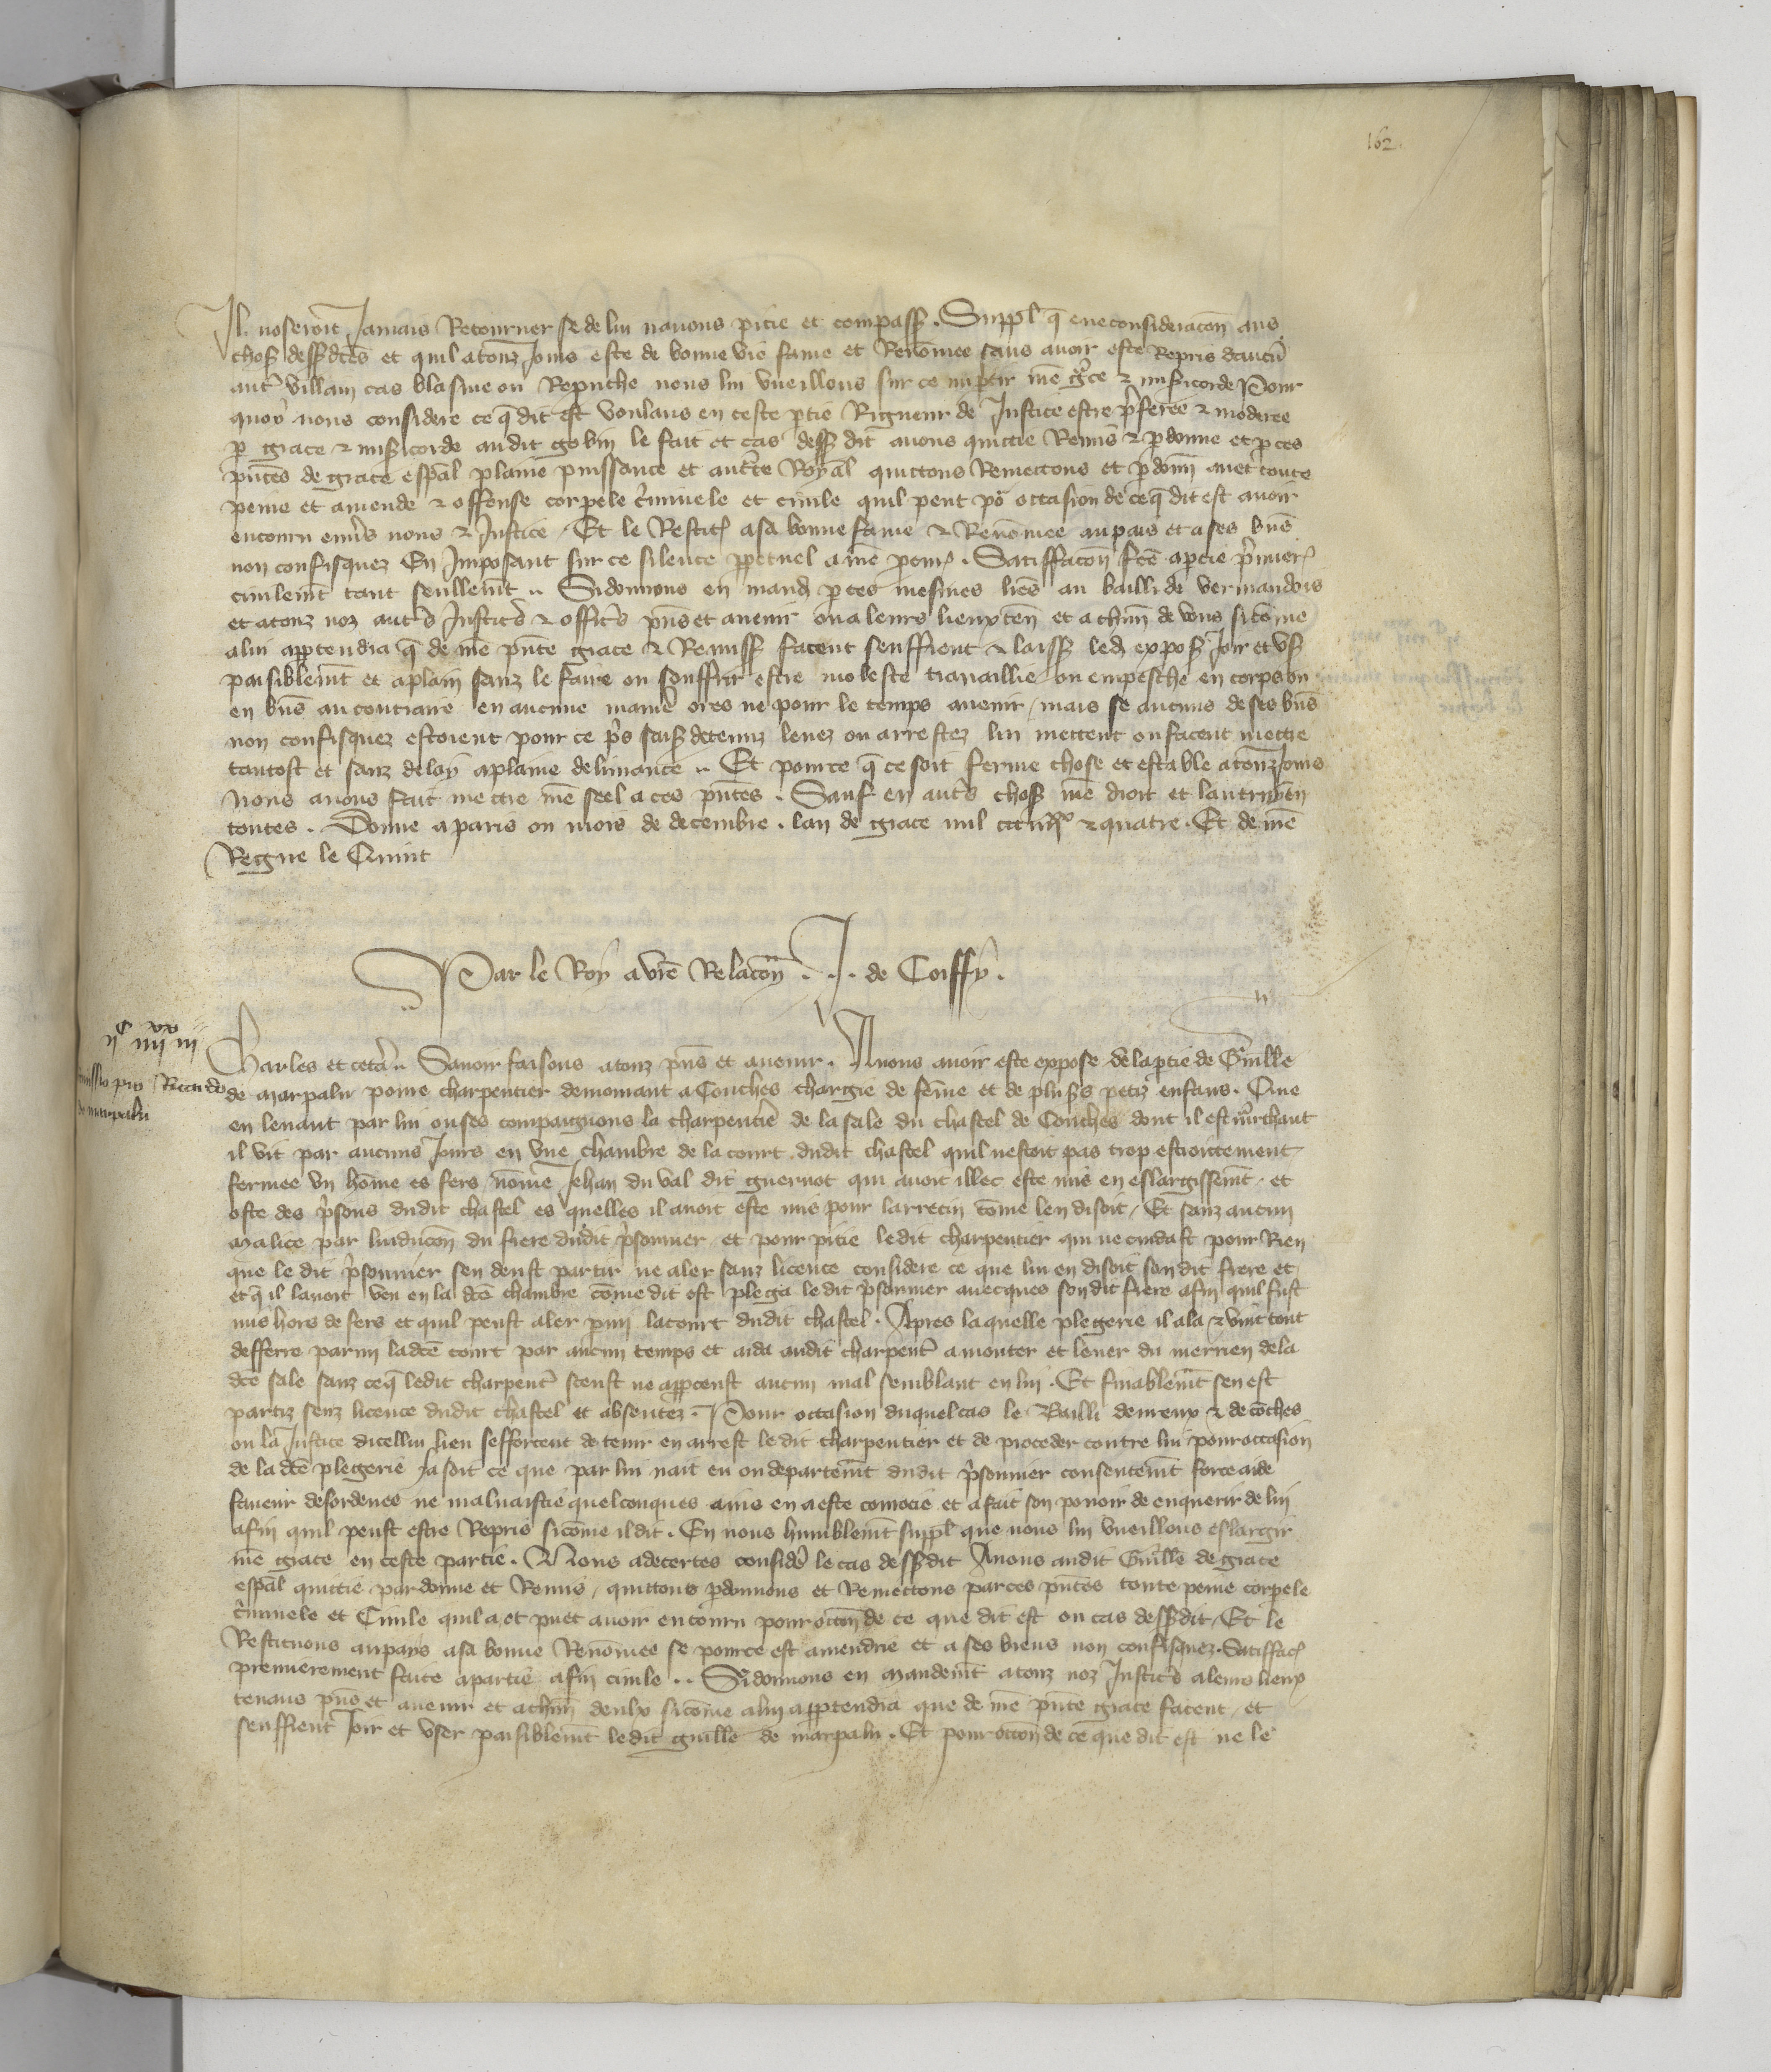 162
Il noseroit Jamais Retourner se de lui nauons pitie et compass. Suppl q̃ eue consideracoñ aus
chos dess dc̃es et quil a touz Jours este de bonne vie fame et Renõmee sans auoir este Repris daucũ
autr̃ villain cas blasme ou Reprouche nous lui vueillons sur ce impartir nr̃e gr̃ce ⁊ miscorde Pour
quoy nous considere ce q̃ dit est voulans en ceste ptie Rigueur de Justice estre p̃feree ⁊ moderee
p grace ⁊ misicorde audit gobin le fait et cas dess dit auons quictie Remis ⁊ pdonne et p ces
pñtes de grace esp̃al plaine puissance et auct̃e Royal quictons Remettons et pdonñ auec toute
peine et amende ⁊ offense corpele c̃iminele et ciuile quil peut po᷑ occasion de ce q̃ dit est auoir
encouru enu̾s nous ⁊ Justice / Et le Restit a sa bonne fame ⁊ Renõmee au pais et a ses bñs
non confisquez En Imposant sur ce silence ppetuel a nr̃e pcur . Satiffacoñ fc̃e a ptie p̃mier
ciuilemt̃ tant seullemt̃ .. Si donnons en mand p ces mesmes lr̃es au bailli de vermandois
et a touz noz autr̃s Justic̃s ⁊ offic̃s pñs et auenir ou a leurs lieuxteñ et a chũn de vous si cõme
a lui apptendra q̃ de nr̃e pñte grace ⁊ Remiss facent seuffrent ⁊ laiss led expos Joir et vs
paisiblemt̃ et a plain sanz le faire ou souffrir estre moleste trauaillie ou empesche en corps ou
en bñs au contraire en aucune manie᷑ ores ne pour le temps auenir / mais se aucuns de ses bñs
non confisquez estoient pour ce p̃s sais detenuz leuez ou arrestez lui mettent ou facent mettre
tantost et sanz delay a plaine deliurance .. Et pour ce q̃ ce soit ferme chose et estable a touz Jours
Nous auons fait mettre nr̃e seel a ces pñtes . Sauf en autr̃s chos nr̃e droit et lautruy eñ
toutes . Donne a paris ou mois de decembre . lan de grace mil ccc iiijxx ⁊ quatre . Et de nr̃e
Regne le Quint
Par le Roy a vr̃e Relacoñ . J . de Coiffy .
ijC iiijxx iij
Remissio pro Ricardo
de marpalu
Charles et cetr̃a .. Sauoir faisons a touz pñs et auenir . Nnous auoir este expose de la ptie de Guille
de Marpalu poure charpentier demourant a Conches chargie de fẽme et de plus̾s petiz enfans . Que
en leuant par lui ou ses compaignons la charpenterie᷑ de la sale du chastel de Conches dont il est m̃rchant
il vit par aucuns Jours en vne chambre de la court dudit chastel quil nestoit pas trop estroictement
fermee vn hõme es fers nõme Jehan du val dit guernot qui auoit illec este mis en eslargissemt̃ . et
oste des p̃sons dudit chastel es quelles il auoit este mis pour larrecin cõme len disoit / Et sanz aucun
malice par linducõn du frere dudit p̃sonnier et pour pitie ledit charpentier qui ne cuidast pour Rien
que le dit p̃sonnier sen deust partir ne aler sanz licence considere ce que lui en disoit son dit frere et
et q̃ il lauoit veu en la dc̃e chambre cõme dit est plega le dit p̃sonnier auecques son dit frere afin quil fust
mis hors de fers et quil peust aler pmi la court dudit chastel . Apres laquelle plegerie il ala ⁊ vint tout
defferre parmi ladc̃e court par aucun temps et aida audit charpent̃ a monter et leuer du merrien de la
dc̃e sale sanz ce q̃ ledit charpent̃ sceust ne appceust aucun mal semblant en lui . Et finablemt̃ sen est
partiz senz licence dudit chastel et absentez . Pour occasion duquel cas le Bailli deureux ⁊ de cõches
ou la Justice dicellui lieu sefforcent de tenir en arrest le dit charpentier et de proceder contre lui pour occasion
de la dc̃e plegerie Ja soit ce que par lui nait eu ou departemt̃ dudit p̃sonnier consentemt̃ force aide
faueur desordenee ne maluaistie quelconques ains en a este corrocie et a fait son pouoir de enquerir de lui
afin quil peust estre Repris si cõme il dit . En nous humblemt̃ suppl que nous lui vueillons eslargir
nr̃e grace en ceste partie . Nous adecertes consider̃ le cas dessdit Auons audit Guille de grace
esp̃al quictie pardonne et Remis / quictons pdonnons et Remettons par ces pñtes toute peine corpele
c̃iminele et Ciuile quil a et puet auoir encouru pour occoñ de ce que dit est ou cas dessdit / Et le
Restituons au pays a sa bonne Renõmee se pour ce est amendrie et a ses biens non confisquez . Satiffac
premierement faite a partie afin ciuile .. Si donnons en mandemt̃ a touz noz Justic̃s a leurs lieux
tenans pñs et auenir et a chũn deulx si cõme a lui apptendra que de nr̃e pñte grace facent / et
seuffrent Joir et vser paisiblemt̃ ledit guille de marpalu . Et pour occoñ de ce que dit est ne le